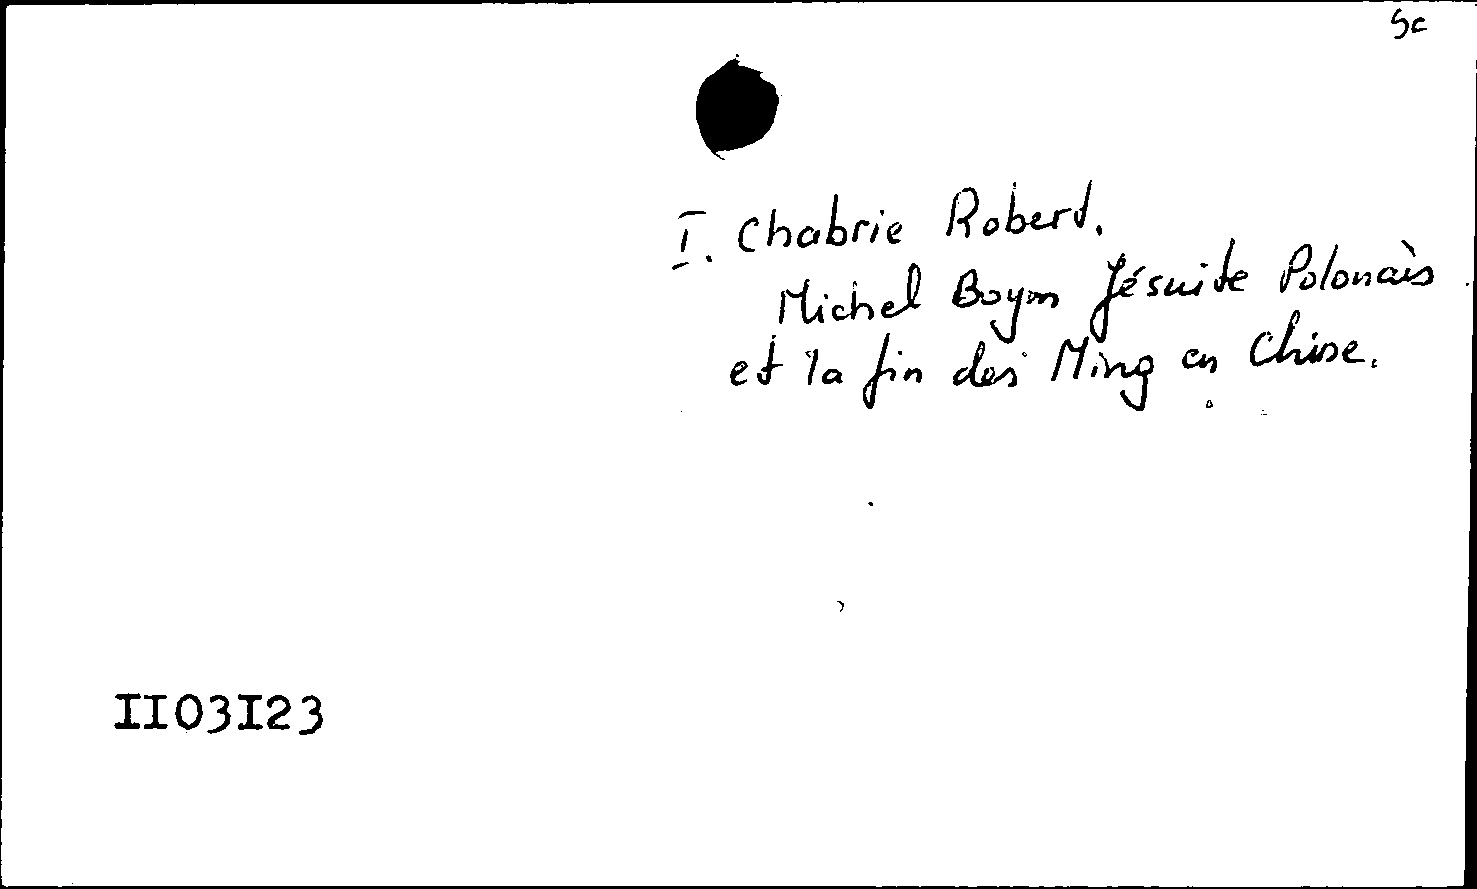 Sc
I. Chabrie Robert.
Michel Boym Jésuite Polonais
et la fin des Ming en Chine.
II03I23